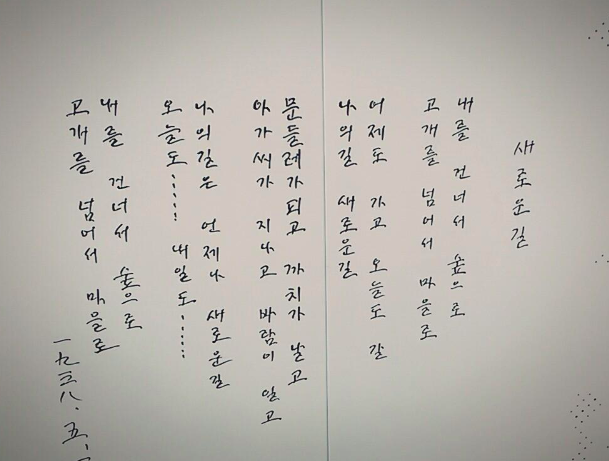 새로운길
내를 건너서 숲으로
고개를 넘어서 마을로
어제도 가고 오늘도 갈
나의길 새로운길
문들레가피고 까치가 날고
아가씨가 지나고 바람이 일고
나의길은 언제나 새로운길
오늘도…… 내일도……
내를 건너서 숲으로
고개를 넘어서 마을로
一九三八·五·